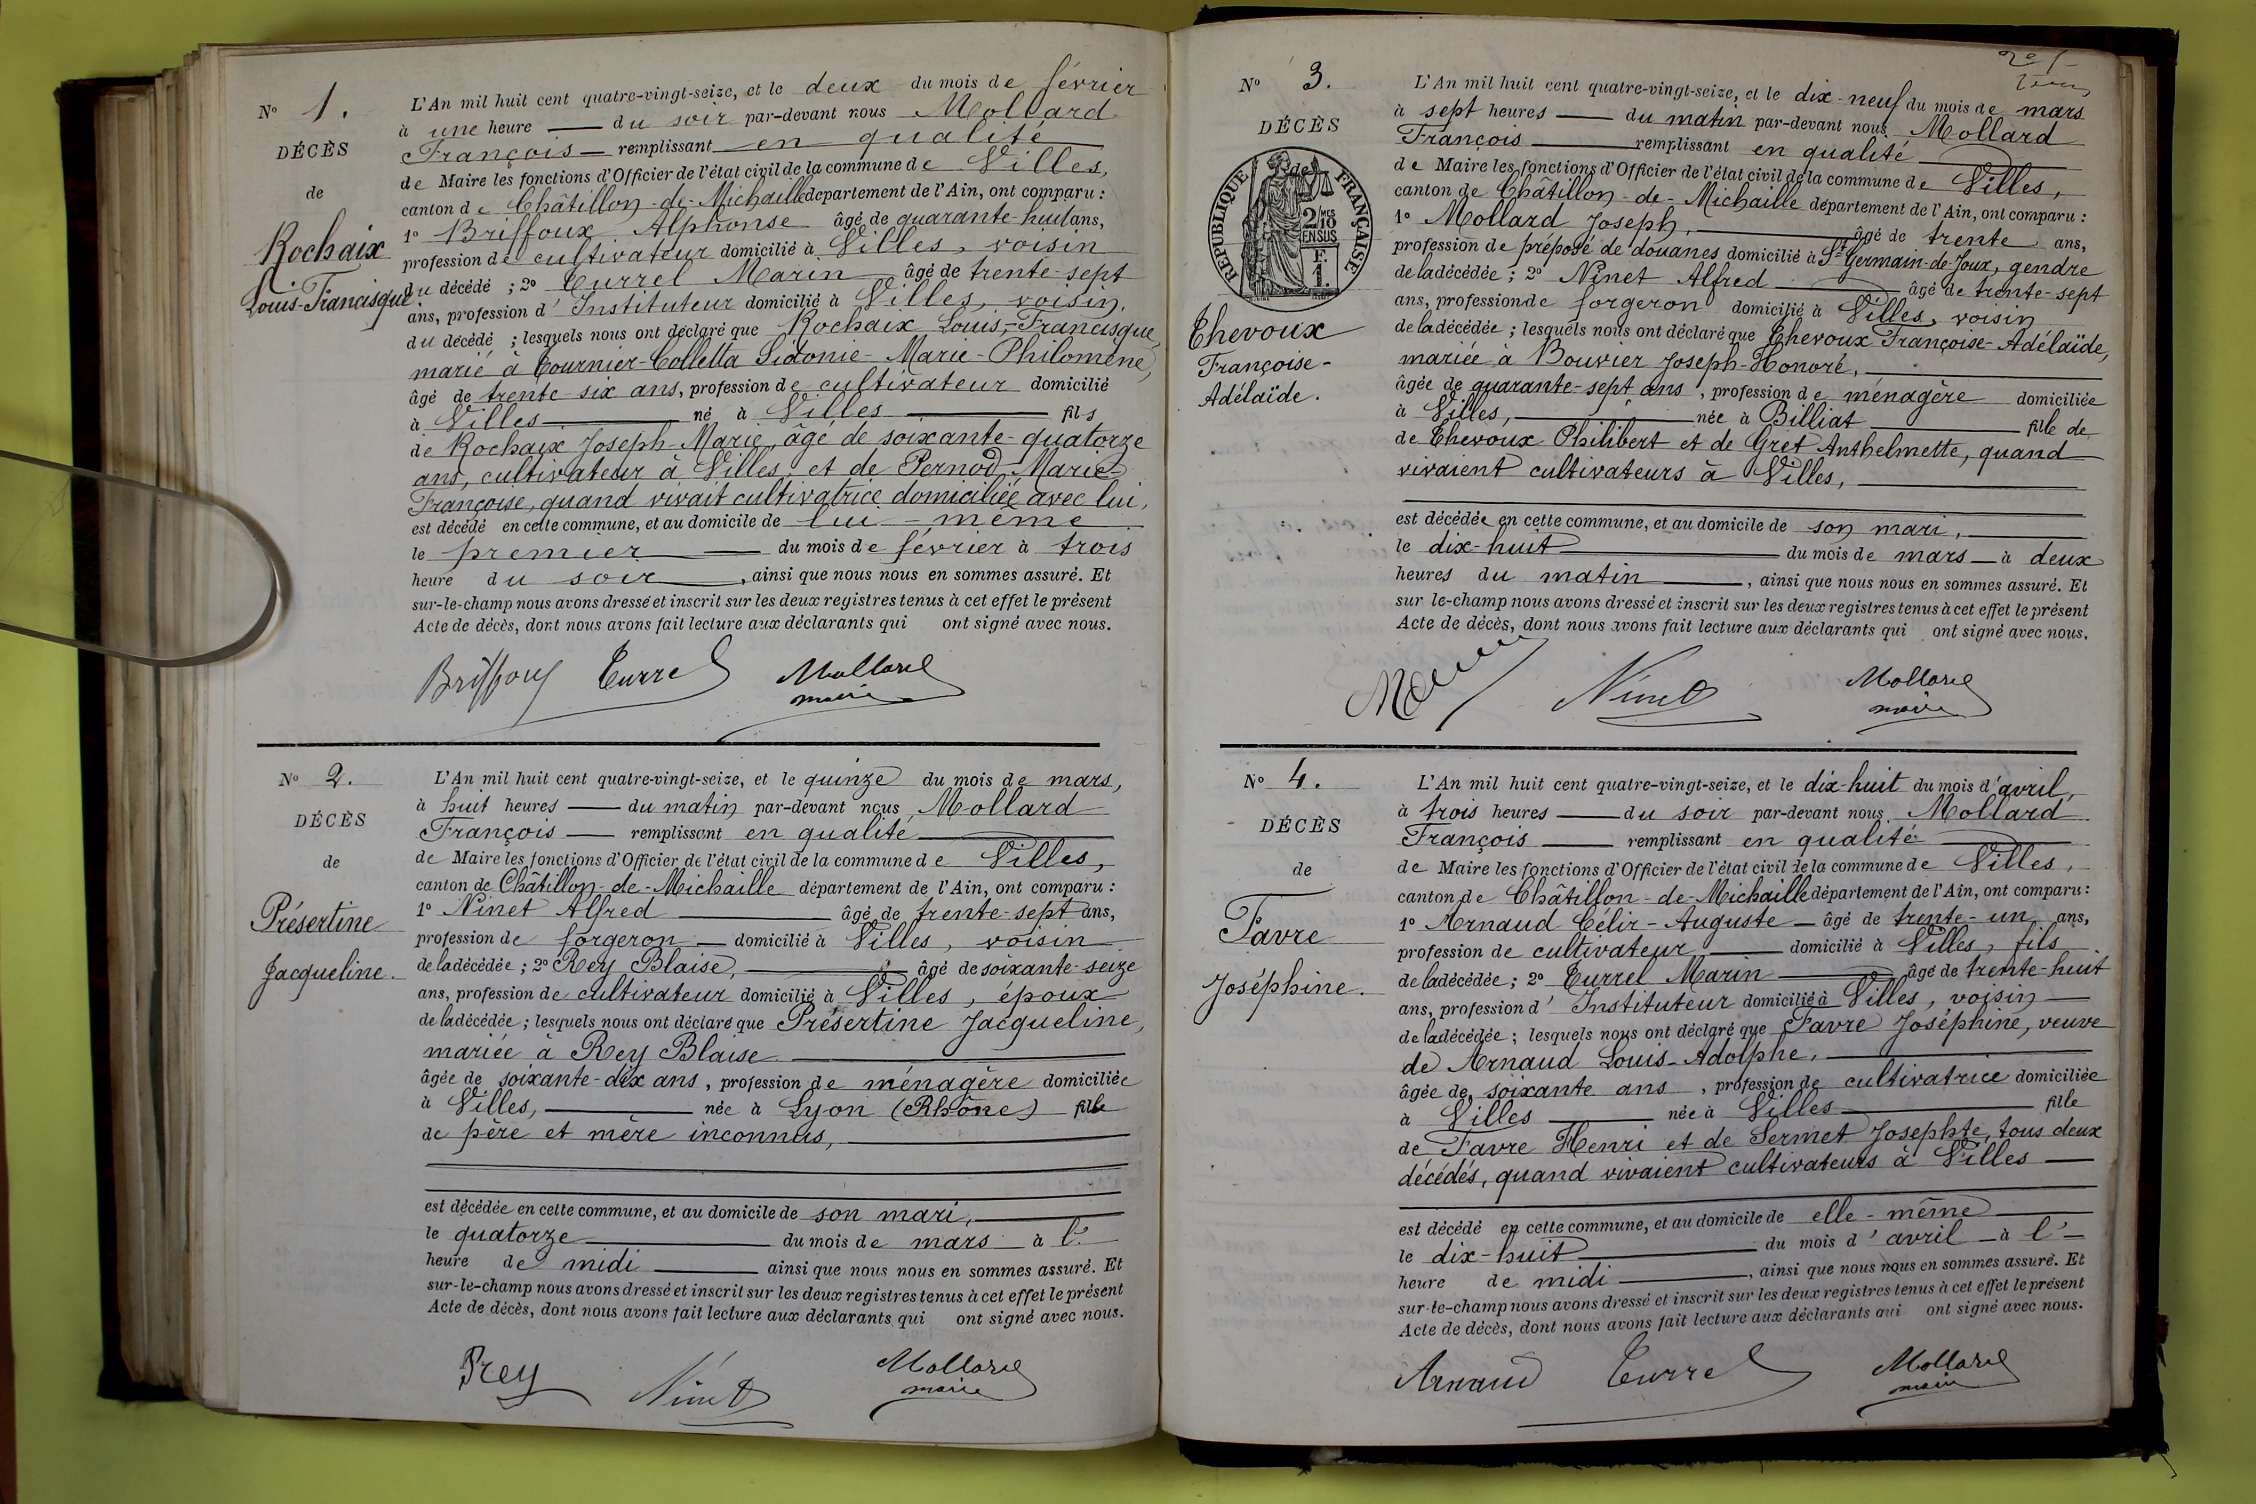 N° 1.
DÉCÈS
de
Rochaix
Louis-Francisque
L'An mil huit cent quatre-vingt-seize, et le deux du mois de février
à une heure du soir par-devant nous Mollard
François remplissant en qualité
de Maire les fonctions d'Officier de l'état civil de la commune de Villes,
canton de Châtillon-de-Michaille département de l'Ain, ont comparu :
1° Briffoux Alphonse âgé de quarante-huit ans,
profession de cultivateur domicilié à Villes, voisin
du décédé ; 2° Turrel Marin âgé de trente-sept
ans, profession d'Instituteur domicilié à Villes, voisin
du décédé ; lesquels nous ont déclaré que Rochaix Louis-Francisque,
marié à Tournier-Colletta Sidonie-Marie-Philomène,
âgé de trente-six ans, profession de cultivateur domicilié
à Villes né à Villes fils
de Rochaix Joseph-Marie, âgé de soixante-quatorze
ans, cultivateur à Villes et de Pernod Marie-
Françoise, quand vivait cultivatrice domiciliée avec lui,
est décédé en cette commune, et au domicile de lui-même
le premier du mois de février à trois
heure du soir, ainsi que nous nous en sommes assuré. Et
sur-le-champ nous avons dressé et inscrit sur les deux registres tenus à cet effet le présent
Acte de décès, dont nous avons fait lecture aux déclarants qui ont signé avec nous.
Briffoux Turrel Mollard
maire
N° 2.
DÉCÈS
de
Présertine
Jacqueline.
L'An mil huit cent quatre-vingt-seize, et le quinze du mois de mars,
à huit heures du matin par-devant nous Mollard
François remplissant en qualité
de Maire les fonctions d'Officier de l'état civil de la commune de Villes,
canton de Châtillon-de-Michaille département de l'Ain, ont comparu :
1° Ninet Alfred âgé de trente-sept ans,
profession de forgeron domicilié à Villes, voisin
de la décédée ; 2° Rey Blaise, âgé de soixante-seize
ans, profession de cultivateur domicilié à Villes, époux
de la décédée ; lesquels nous ont déclaré que Présertine Jacqueline,
mariée à Rey Blaise
âgée de soixante-dix ans, profession de ménagère domiciliée
à Villes, née à Lyon (Rhône) fille
de père et mère inconnus,
est décédée en cette commune, et au domicile de son mari,
le quatorze du mois de mars à l'
heure de midi ainsi que nous nous en sommes assuré. Et
sur-le-champ nous avons dressé et inscrit sur les deux registres tenus à cet effet le présent
Acte de décès, dont nous avons fait lecture aux déclarants qui ont signé avec nous.
Rey Ninet Mollard
maire
N° 3.
DÉCÈS
de
RÉPUBLIQUE FRANÇAISE
2/10MES
EN SUS
F.
1.
Thevoux
Françoise-
Adélaïde.
L'An mil huit cent quatre-vingt-seize, et le dix-neuf du mois de mars
à sept heures du matin par-devant nous Mollard
François remplissant en qualité
de Maire les fonctions d'Officier de l'état civil de la commune de Villes,
canton de Châtillon-de-Michaille département de l'Ain, ont comparu :
1° Mollard Joseph, âgé de trente ans,
profession de préposé de douanes domicilié à St Germain-de-Joux, gendre
de la décédée ; 2° Ninet Alfred âgé de trente-sept
ans, profession de forgeron domicilié à Villes, voisin
de la décédée ; lesquels nous ont déclaré que Thevoux Françoise-Adélaïde,
mariée à Bouvier Joseph-Honoré,
âgée de quarante-sept ans, profession de ménagère domiciliée
à Villes, née à Billiat fille de
de Thevoux Philibert et de Gret Anthelmette, quand
vivaient cultivateurs à Villes,
est décédée en cette commune, et au domicile de son mari,
le dix-huit du mois de mars à deux
heures du matin, ainsi que nous nous en sommes assuré. Et
sur le-champ nous avons dressé et inscrit sur les deux registres tenus à cet effet le présent
Acte de décès, dont nous avons fait lecture aux déclarants qui ont signé avec nous.
Ninet Mollard
maire
N° 4.
DÉCÈS
de
Favre
Joséphine.
L'An mil huit cent quatre-vingt-seize, et le dix-huit du mois d'avril,
à trois heures du soir par-devant nous Mollard
François remplissant en qualité
de Maire les fonctions d'Officier de l'état civil de la commune de Villes,
canton de Châtillon-de-Michaille département de l'Ain, ont comparu :
1° Arnaud Célir-Auguste âgé de trente-un ans,
profession de cultivateur domicilié à Villes, fils
de la décédée ; 2° Turrel Marin âgé de trente-huit
ans, profession d'Instituteur domicilié à Villes, voisin
de la décédée ; lesquels nous ont déclaré que Favre Joséphine, veuve
de Arnaud Louis-Adolphe,
âgée de soixante ans, profession de cultivatrice domiciliée
à Villes née à Villes fille
de Favre Henri et de Sermet Josephte, tous deux
décédés, quand vivaient cultivateurs à Villes
est décédé en cette commune, et au domicile de elle-même
le dix-huit du mois d'avril à l'
heure de midi, ainsi que nous nous en sommes assuré. Et
sur-le-champ nous avons dressé et inscrit sur les deux registres tenus à cet effet le présent
Acte de décès, dont nous avons fait lecture aux déclarants qui ont signé avec nous.
Arnaud Turrel Mollard
maire